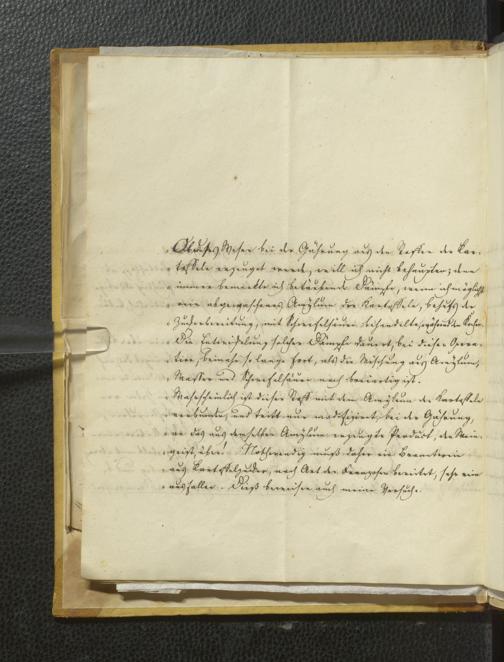 bei der Gährung aus den
toffeln erzeugt werde, will ich nicht behaupten; denn
immer bemerkte ich betäubende Dämpfe, wenn ich möglichst
rein abgewaschenes Amylum der Kartoffeln, behufs der
Zuckerbereitung, mit Schwefelsäure behandelte,
Die Entwickelung solcher Dämpfe dauert, bei dieser Opera-
tion, beinahe so lange fort, als die Mischung aus Amylum,
Wasser und Schwefelsäure noch breiartig ist.
Wahrscheinlich ist dieser Saft mit dem Amylum der Kartoffeln
verbunden, und tritt nur modifizirt, bei der Gährung,
in das aus demselben Amylum erzeugte Produkt, den Wein-
geist, über. Nothwendig muß daher ein Branntwein
aus Kartoffelzucker, nach Art der Franzosen bereitet, sehr rein
ausfallen. Dieß beweisen auch meine Versuche.